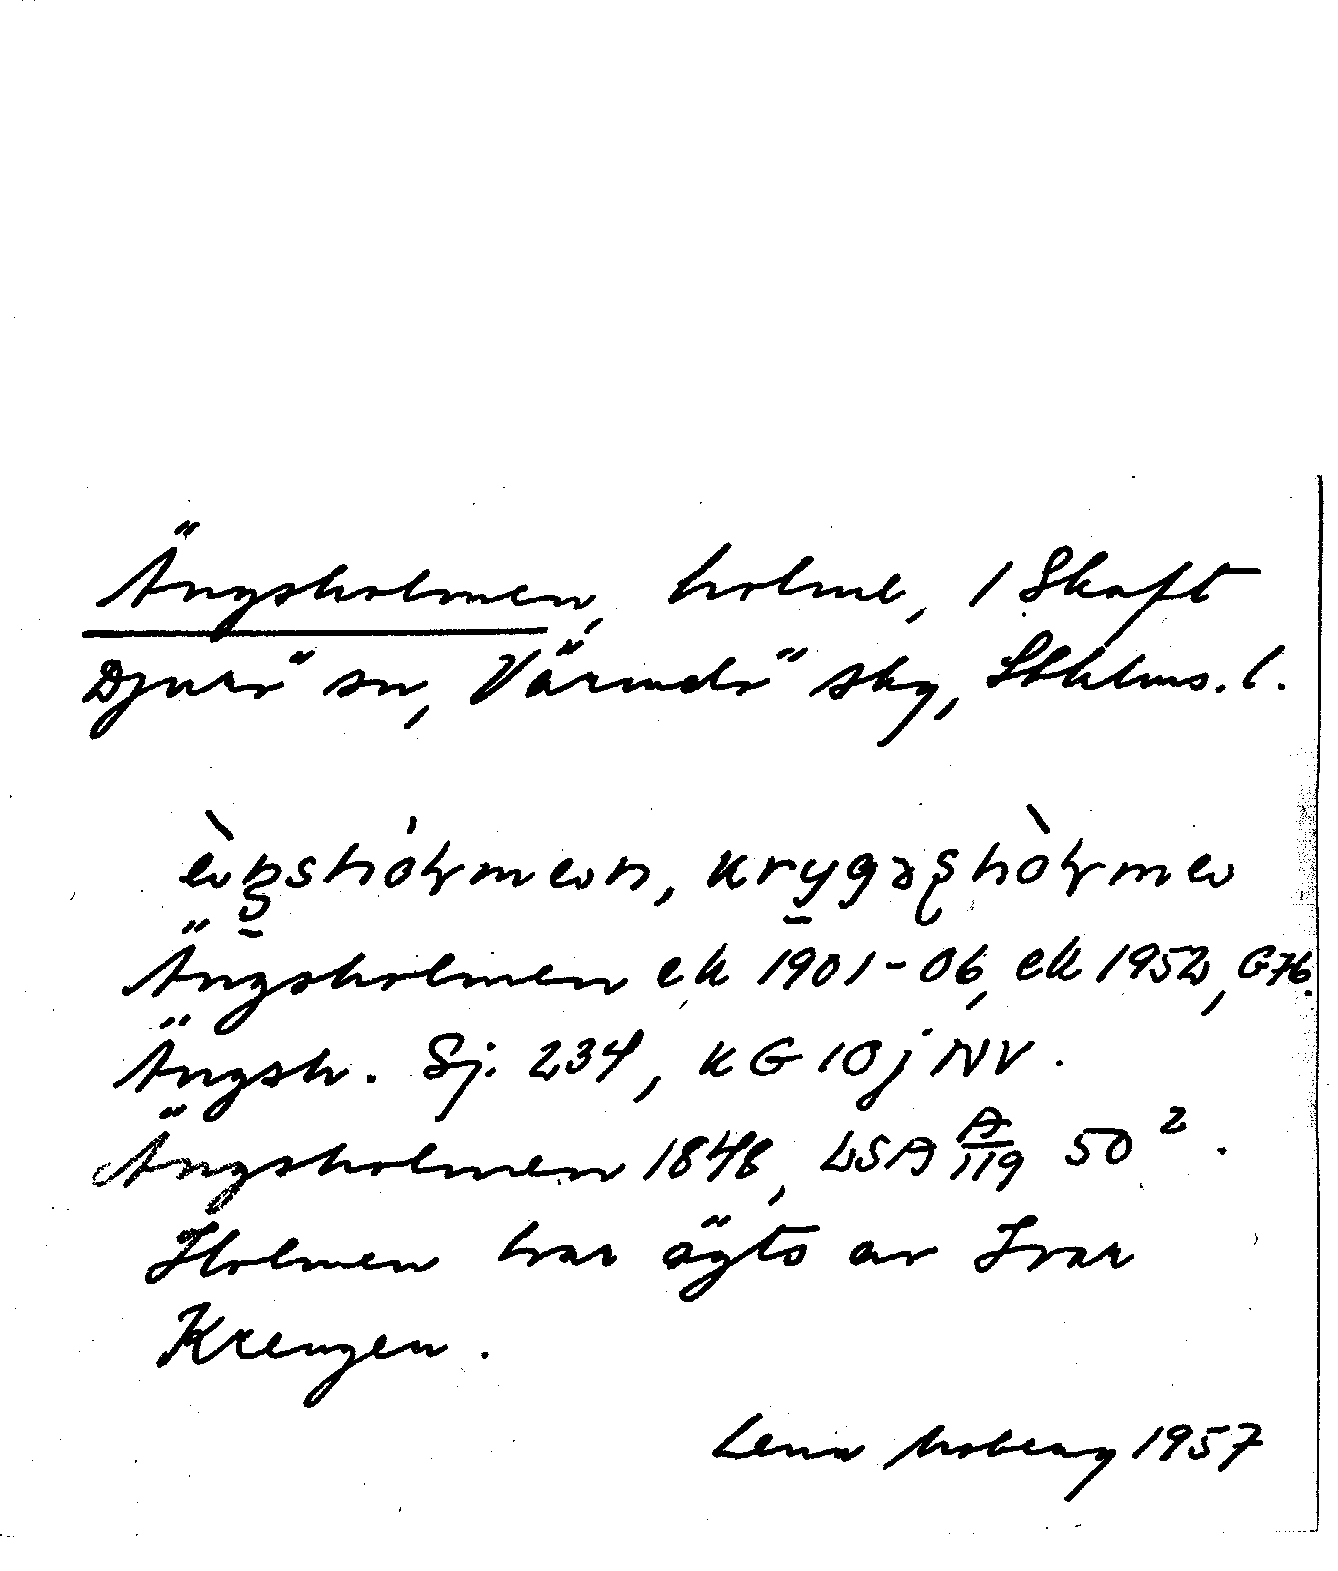 Ängsholmen, holme, 1 Skaft
Djurö sn, Värmdö skg, Sthlms. l.
Ängsholmen ek 1901-06, ek 1952, G76.
Ängsh. Sj. 234, KG 10j NV.
Ängsholmen 1848, LSA A/119 50².
Holmen har ägts av Ivar
Kreugen.
Lena Moberg 1957